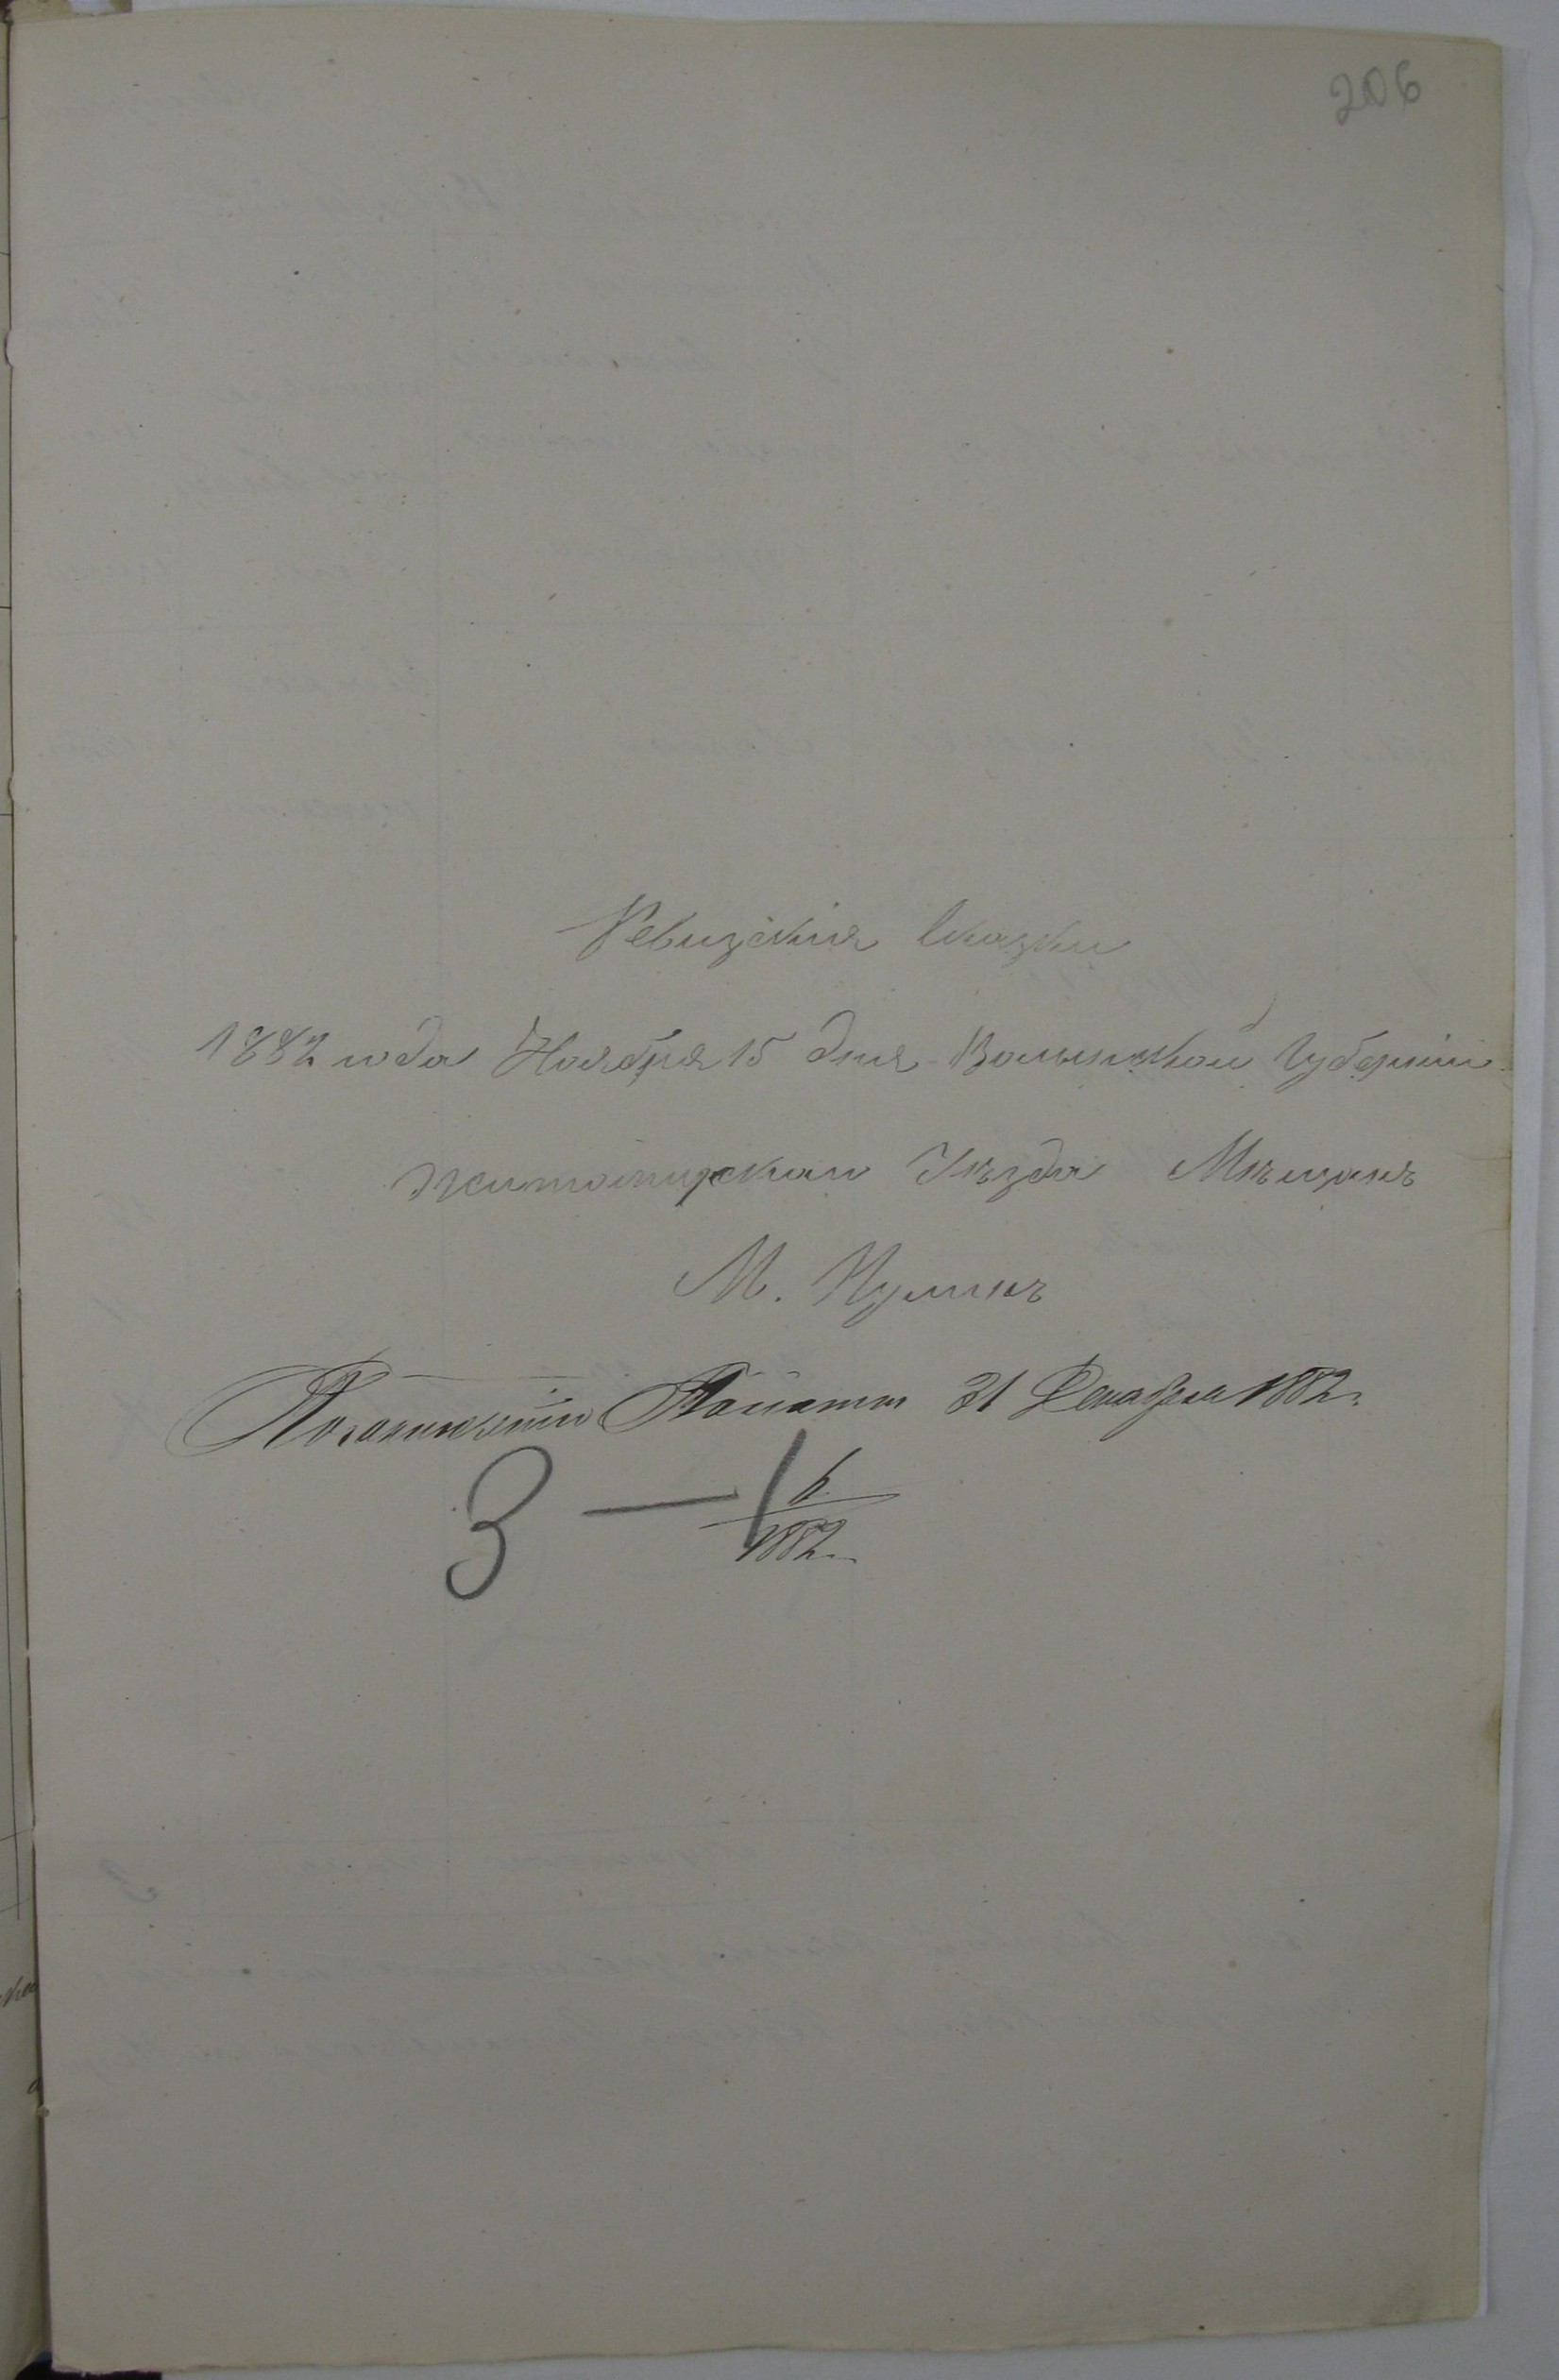 206
Ревизския Сказки
1882 года Ноября 15 дня Волынской Губернии
Житомирскаго Уезда Мещанъ
М. Пулинъ
Палаты 31 Декабря 1882 г.
3 — 1
6
1882 г.